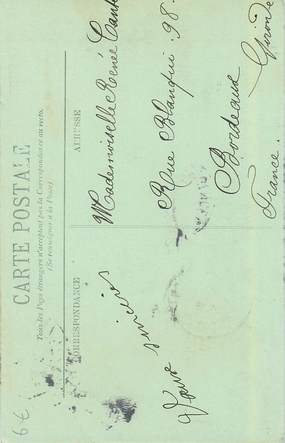 CARTE POSTALE
Tous les Pays étrangers n'acceptent pas la Correspondance au recto.
(Se renseigner à la Poste)
CORRESPONDANCE
ADRESSE
Mademoiselle Renée
Rue Blanqui . 98 .
Bordeaux
Gironde
France .
6€